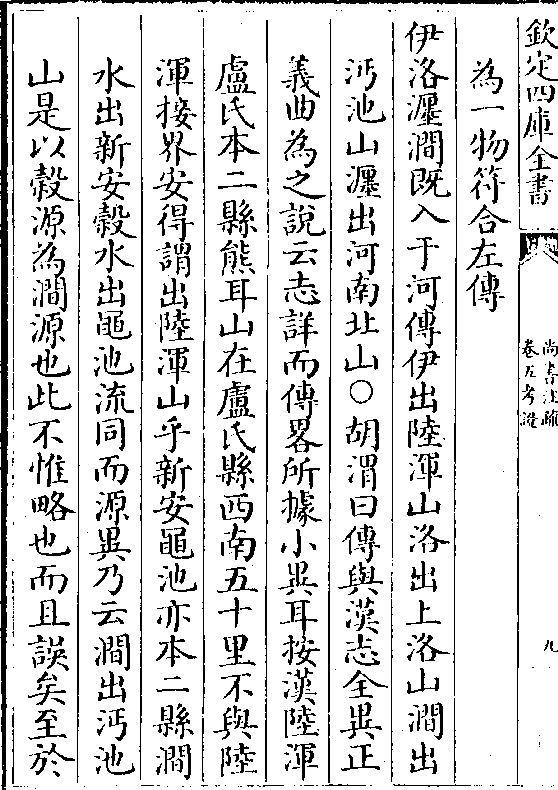 欽定四庫全書
尚書注疏
卷五考證
九
為一物符合左傳
伊洛瀍澗既入于河傳伊出陸渾山洛出上洛山澗出
沔池山瀍出河南北山○胡渭曰傳與漢志全異正
義曲為之說云志詳而傳畧所據小異耳按漢陸渾
盧氏本二縣熊耳山在盧氏縣西南五十里不與陸
渾接界安得謂出陸渾山乎新安黽池亦本二縣澗
水出新安穀水出黽池流同而源異乃云澗出沔池
山是以穀源為澗源也此不惟略也而且誤矣至於